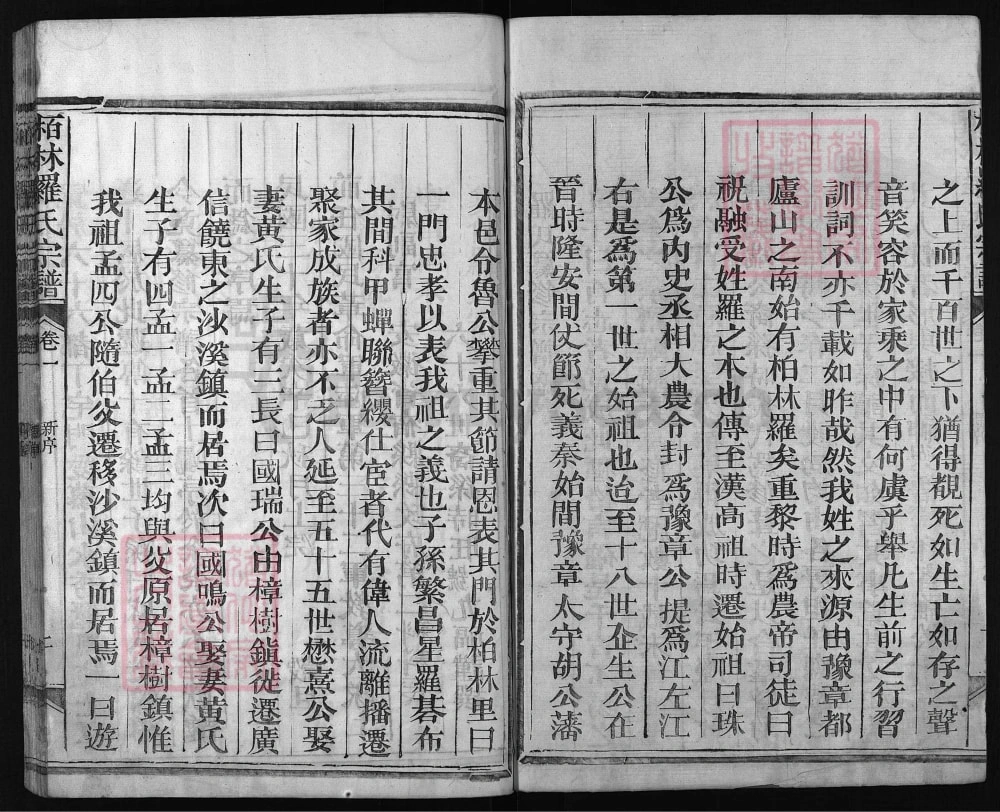 之上而千百世之下猶得覩死如生亡如存之聲
音笑容於家乘之中有何虞乎舉凡生前之行習
訓詞不亦千載如昨哉然我姓之來源由豫章都
廬山之南始有柏林羅矣重黎時爲農帝司徒曰
祝融受姓羅之本也傳至漢高祖時遷始祖曰珠
公爲内史丞相大農令封爲豫章公提爲江左江
右是爲第一世之始祖也迨至十八世企生公在
晉時隆安間伏節死義秦始間豫章太守胡公藩
本邑令魯公攀重其節請恩表其門於柏林里曰
一門忠孝以表我祖之義也子孫繁昌星羅碁布
其間科甲蟬聯簪纓仕宦者代有偉人流離播遷
聚家成族者亦不乏人延至五十五世懋熹公娶
妻黃氏生子有三長曰國瑞公由樟樹鎮徙遷廣
信饒東之沙溪鎮而居焉次曰國鳴公娶妻黃氏
生子有四孟一孟二孟三均與父原居樟樹鎮惟
我祖孟四公隨伯父遷移沙溪鎮而居焉一曰遊
栢林羅氏宗譜
卷一
新序